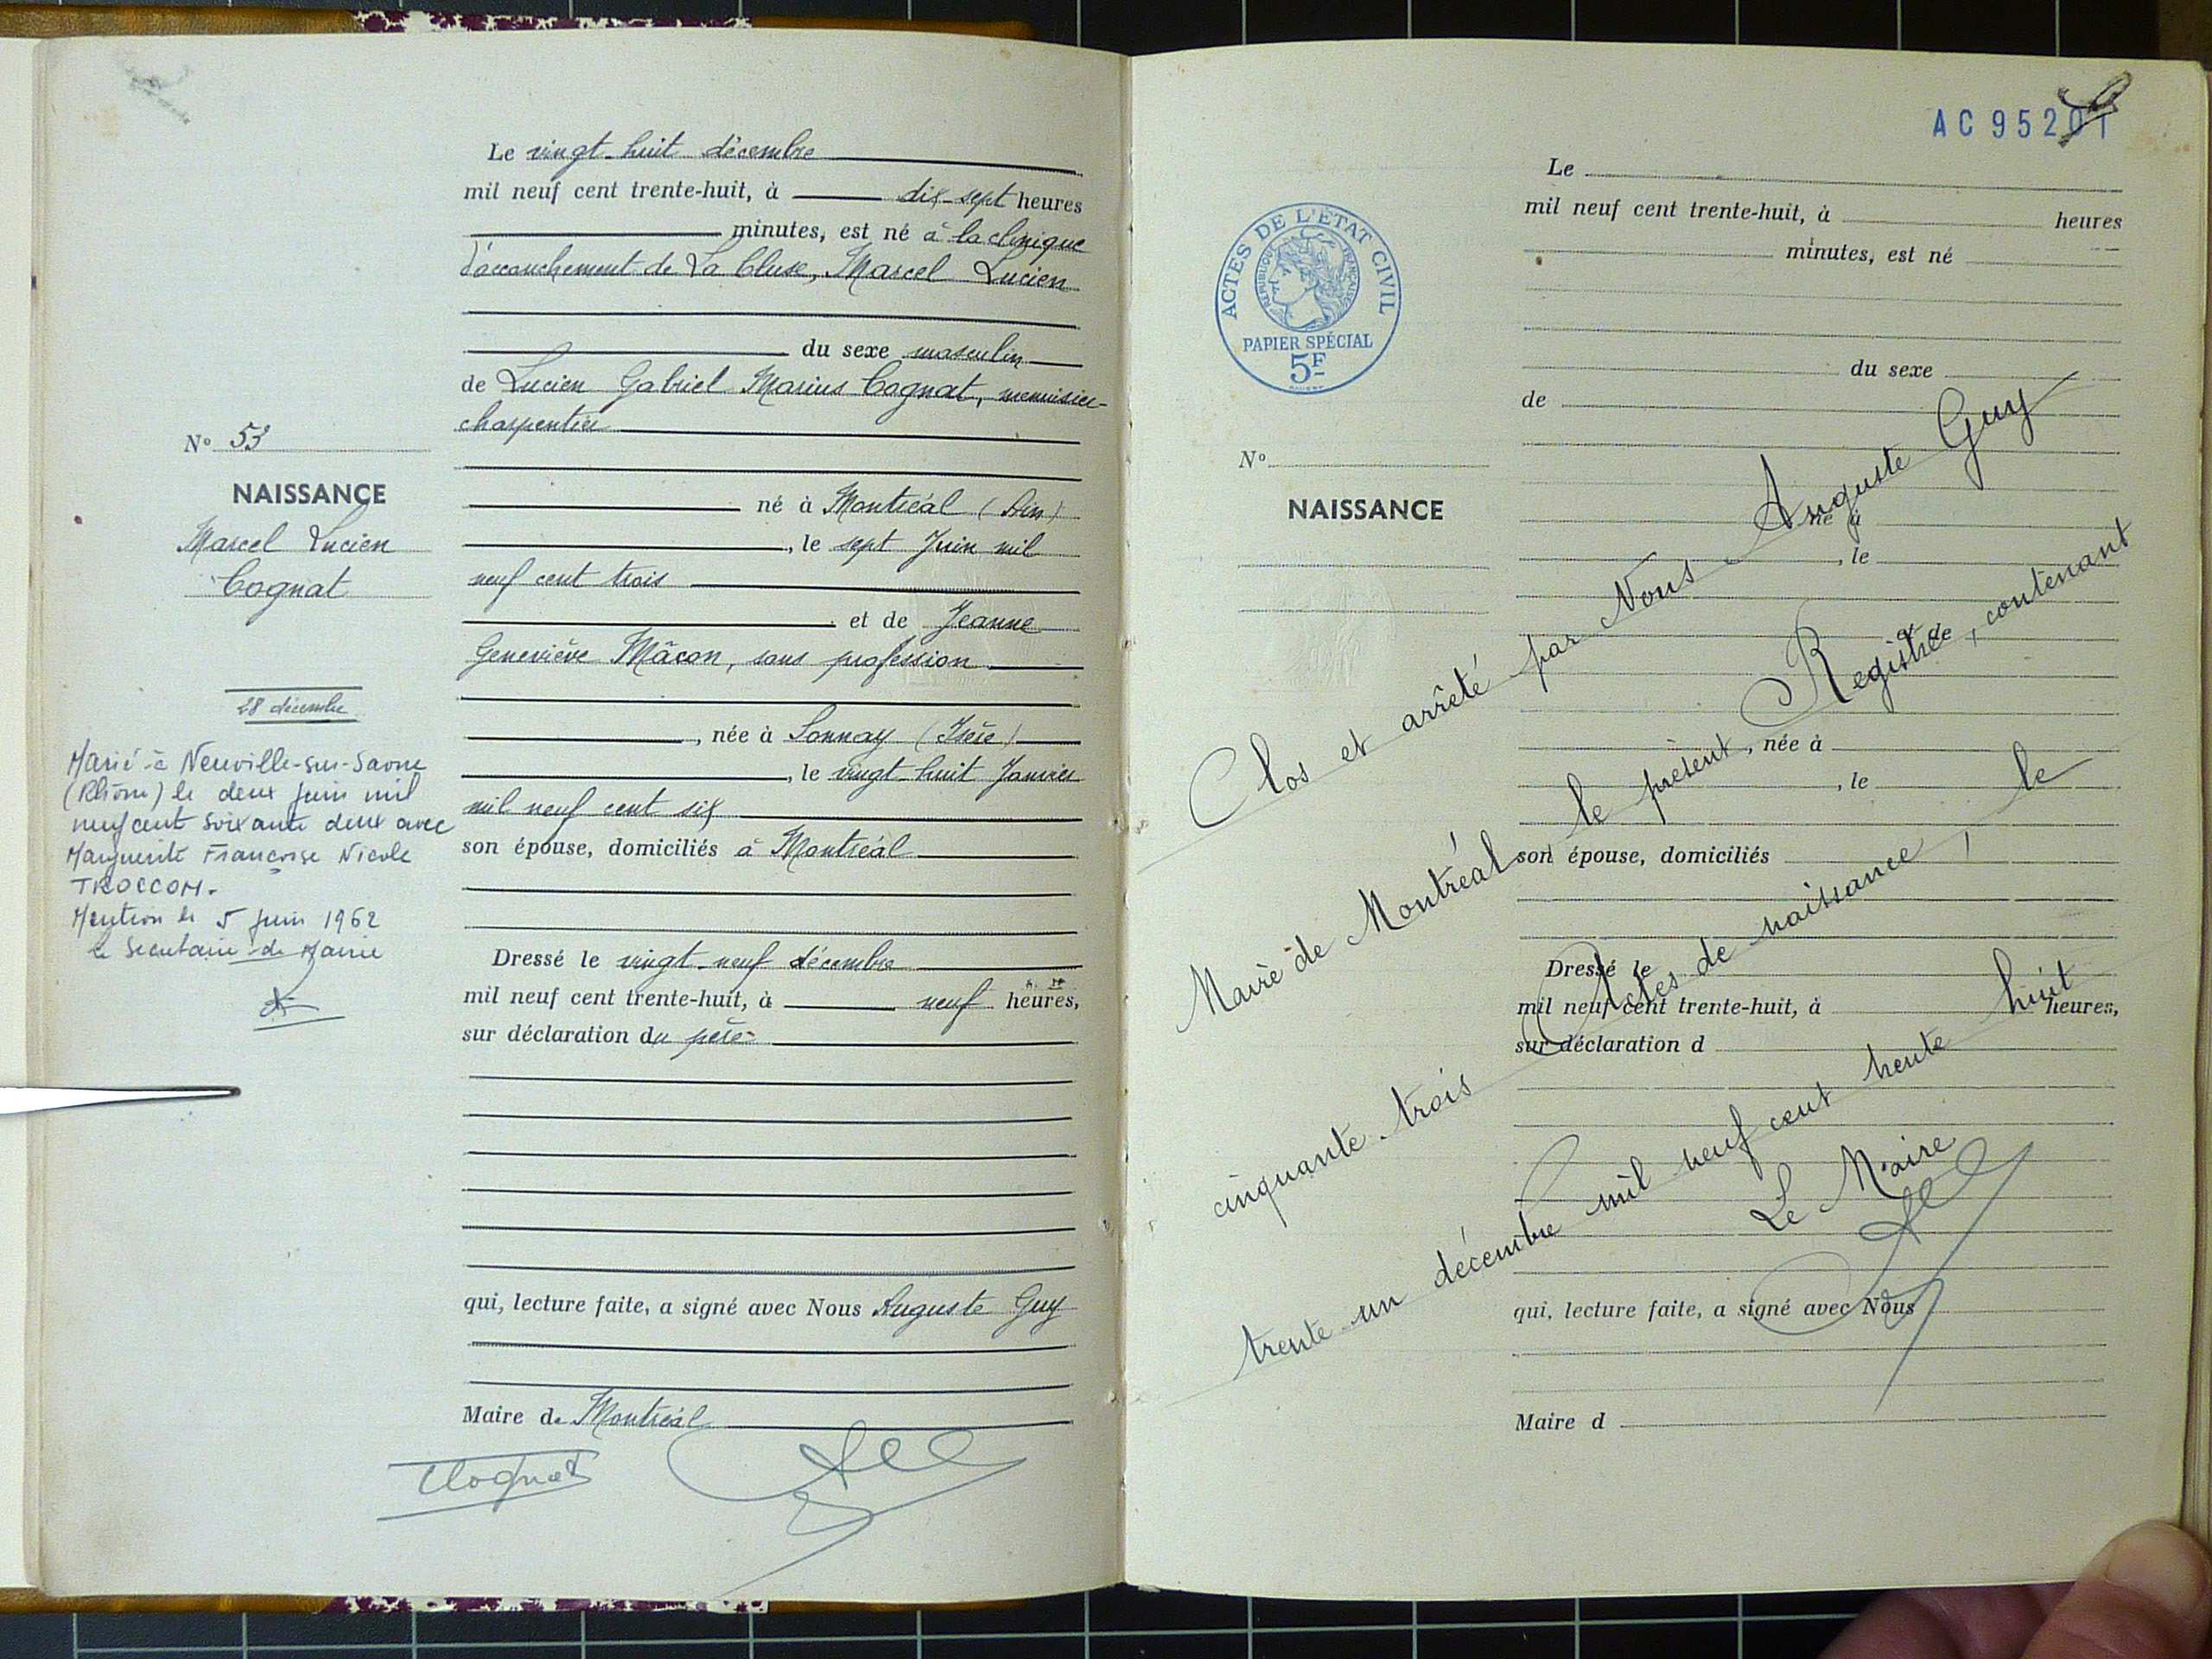 Le vingt-huit décembre
mil neuf cent trente-huit, à dix-sept heures
minutes, est né à la clinique
d'accouchement de La Cluse, Marcel Lucien
du sexe masculin
de Lucien Gabriel Marius Cognat, menuisier-
charpentier
né à Montréal (Ain)
, le sept Juin mil
neuf cent trois
et de Jeanne
Geneviève Mâcon, sans profession
, née à Sonnay (Isère)
, le vingt-huit Janvier
mil neuf cent six
son épouse, domiciliés à Montréal
Dressé le vingt-neuf décembre
mil neuf cent trente-huit, à neuf heures,
sur déclaration du père
qui, lecture faite, a signé avec Nous Auguste Guy
Maire de Montréal
Cognat
N° 53
NAISSANCE
Marcel Lucien
Cognat
28 décembre
Marié à Neuville-sur-Saone
(Rhône) le deux juin mil
neuf cent soixante deux avec
Marguerite Françoise Nicole
TROCCOM.
Mention le 5 juin 1962
le Secrétaire de Mairie
AC 95201
ACTES DE L'ÉTAT CIVIL
RÉPUBLIQUE FRANÇAISE
PAPIER SPÉCIAL
5F
N°
NAISSANCE
Le
mil neuf cent trente-huit, à heures
minutes, est né
du sexe
de
né à
, le
et de
, née à
, le
son épouse, domiciliés
Dressé le
mil neuf cent trente-huit, à heures,
sur déclaration d
qui, lecture faite, a signé avec Nous
Maire d
Clos et arrêté par Nous Auguste Guy
Maire de Montréal le présent Registre, contenant
cinquante-trois Actes de naissance, le
trente-un décembre mil neuf cent trente huit
Le Maire